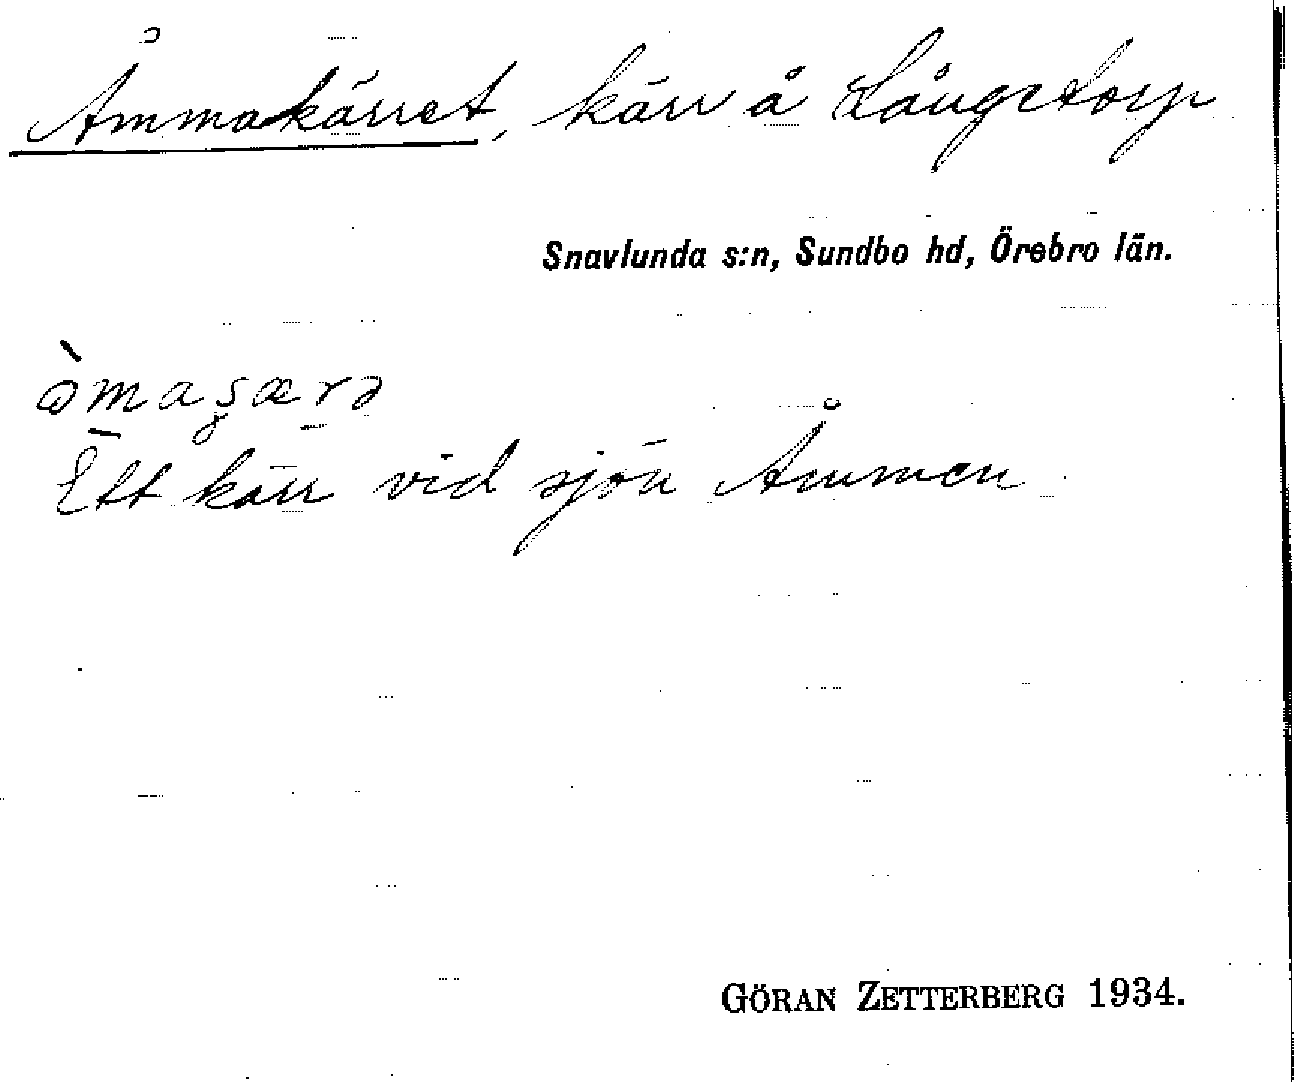 Åmmakärret, kärr å Långetorp
Snavlunda s:n, Sundbo hd, Örebro län.
Ett kärr vid sjön Åmmen
GÖRAN ZETTERBERG 1934.